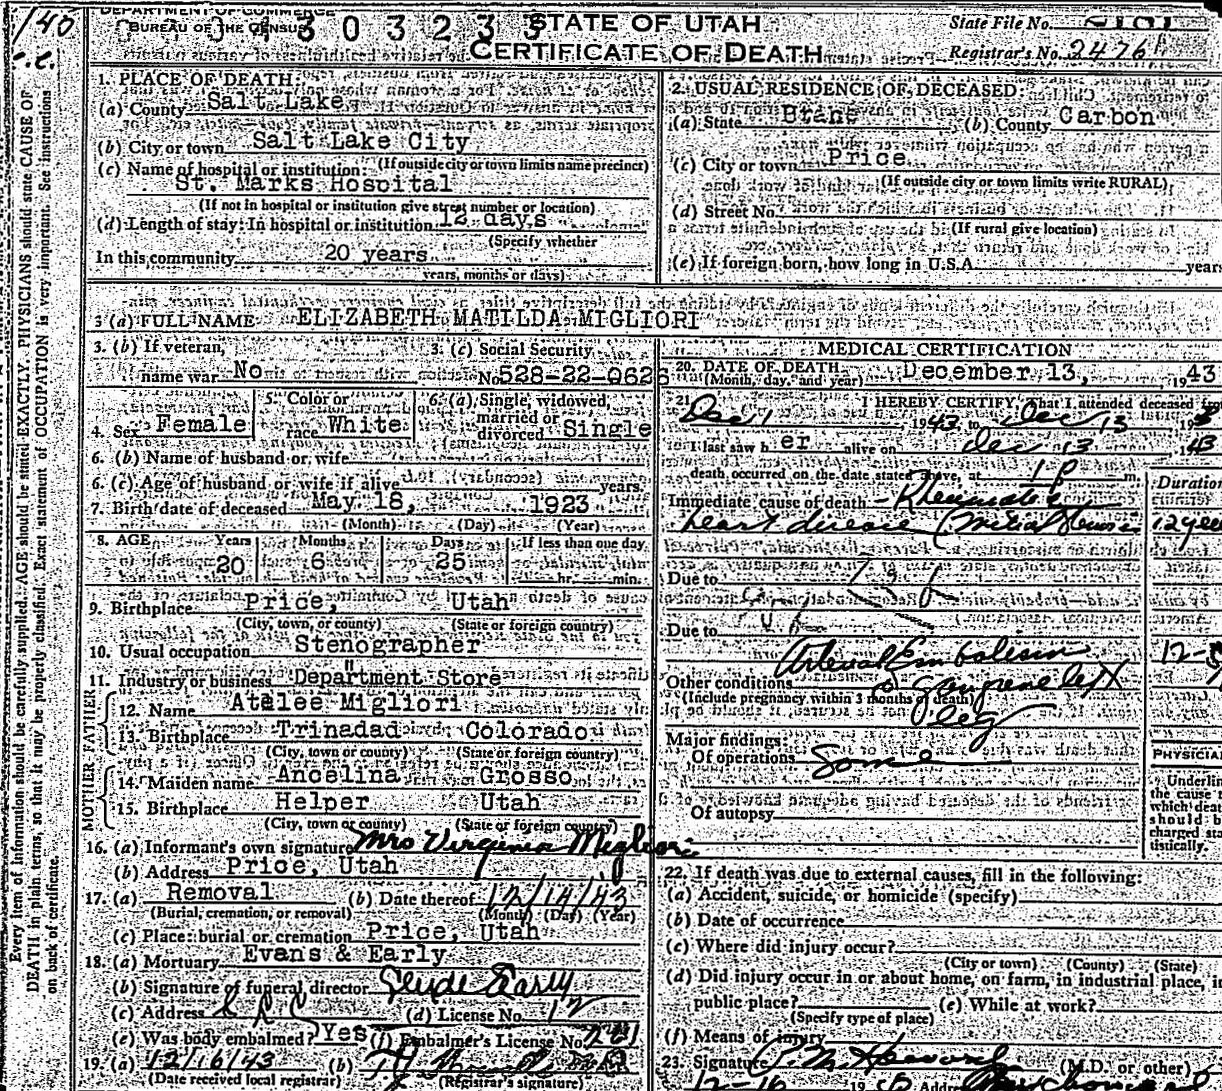 /40
DEPARTMENT OF COMMERCE
BUREAU OF THE CENSUS
303233
STATE OF UTAH
CERTIFICATE OF DEATH
State File No.
Registrar's No. 2476
Every item of information should be carefully supplied. AGE should be stated EXACTLY. PHYSICIANS should state CAUSE OF
DEATH in plain terms, so that it may be properly classified. Exact statement of OCCUPATION is very important. See instructions
on back of certificate.
1. PLACE OF DEATH:
(a) County Salt Lake
(b) City or town Salt Lake City
(If outside city or town limits name precinct)
(c) Name of hospital or institution:
St. Marks Hospital
(If not in hospital or institution give street number or location)
(d) Length of stay: In hospital or institution 12 days
(Specify whether
In this community 20 years
years, months or days)
2. USUAL RESIDENCE OF DECEASED:
(a) State (b) County Carbon
(c) City or town Price
(If outside city or town limits write RURAL)
(d) Street No.
(If rural give location)
(e) If foreign born, how long in U.S.A. years
3 (a) FULL NAME ELIZABETH MATILDA MIGLIORI
3. (b) If veteran,
name war No
3. (c) Social Security
No. 528-22-0626
4. Sex Female
5. Color or
race White
6. (a) Single, widowed,
married or
divorced Single
6. (b) Name of husband or wife
6. (c) Age of husband or wife if alive years
7. Birth date of deceased May 18, 1923
(Month) (Day) (Year)
8. AGE Years Months Days If less than one day
20 6 25 hr. min.
9. Birthplace Price, Utah
(City, town, or county) (State or foreign country)
10. Usual occupation Stenographer
11. Industry or business Department Store
FATHER
12. Name Atelee Migliori
13. Birthplace Trinadad Colorado
(City, town or county) (State or foreign country)
MOTHER
14. Maiden name Ancelina Grosso
15. Birthplace Helper Utah
(City, town or county) (State or foreign country)
16. (a) Informant's own signature Mrs Virginia Migliori
(b) Address Price, Utah
17. (a) Removal (b) Date thereof 12/14/43
(Burial, cremation, or removal) (Month) (Day) (Year)
(c) Place: burial or cremation Price, Utah
18. (a) Mortuary Evans & Early
(b) Signature of funeral director Early
(c) Address S L C (d) License No. 12
(e) Was body embalmed? Yes (f) Embalmer's License No.
19. (a) 12/16/43 (b)
(Date received local registrar) (Registrar's signature)
MEDICAL CERTIFICATION
20. DATE OF DEATH December 13, 1943
(Month, day, and year)
21. I HEREBY CERTIFY, That I attended deceased from
Dec 1 1943, to Dec 13 1943
I last saw her alive on Dec 13 1943
death occurred on the date stated above, at 1 P m.
Duration
Immediate cause of death - Rheumatic
heart disease (Mitral Stenosis 12 years
Due to
Due to
Arterial Embolism
Other conditions gangrene left
(Include pregnancy within 3 months of death)
leg
Major findings:
Of operations
Of autopsy
PHYSICIAN
Underline
the cause to
which death
should be
charged sta-
tistically.
22. If death was due to external causes, fill in the following:
(a) Accident, suicide, or homicide (specify)
(b) Date of occurrence
(c) Where did injury occur?
(City or town) (County) (State)
(d) Did injury occur in or about home, on farm, in industrial place, in
public place? (e) While at work?
(Specify type of place)
(f) Means of injury
23. Signature (M.D. or other)
12-16 19 Address